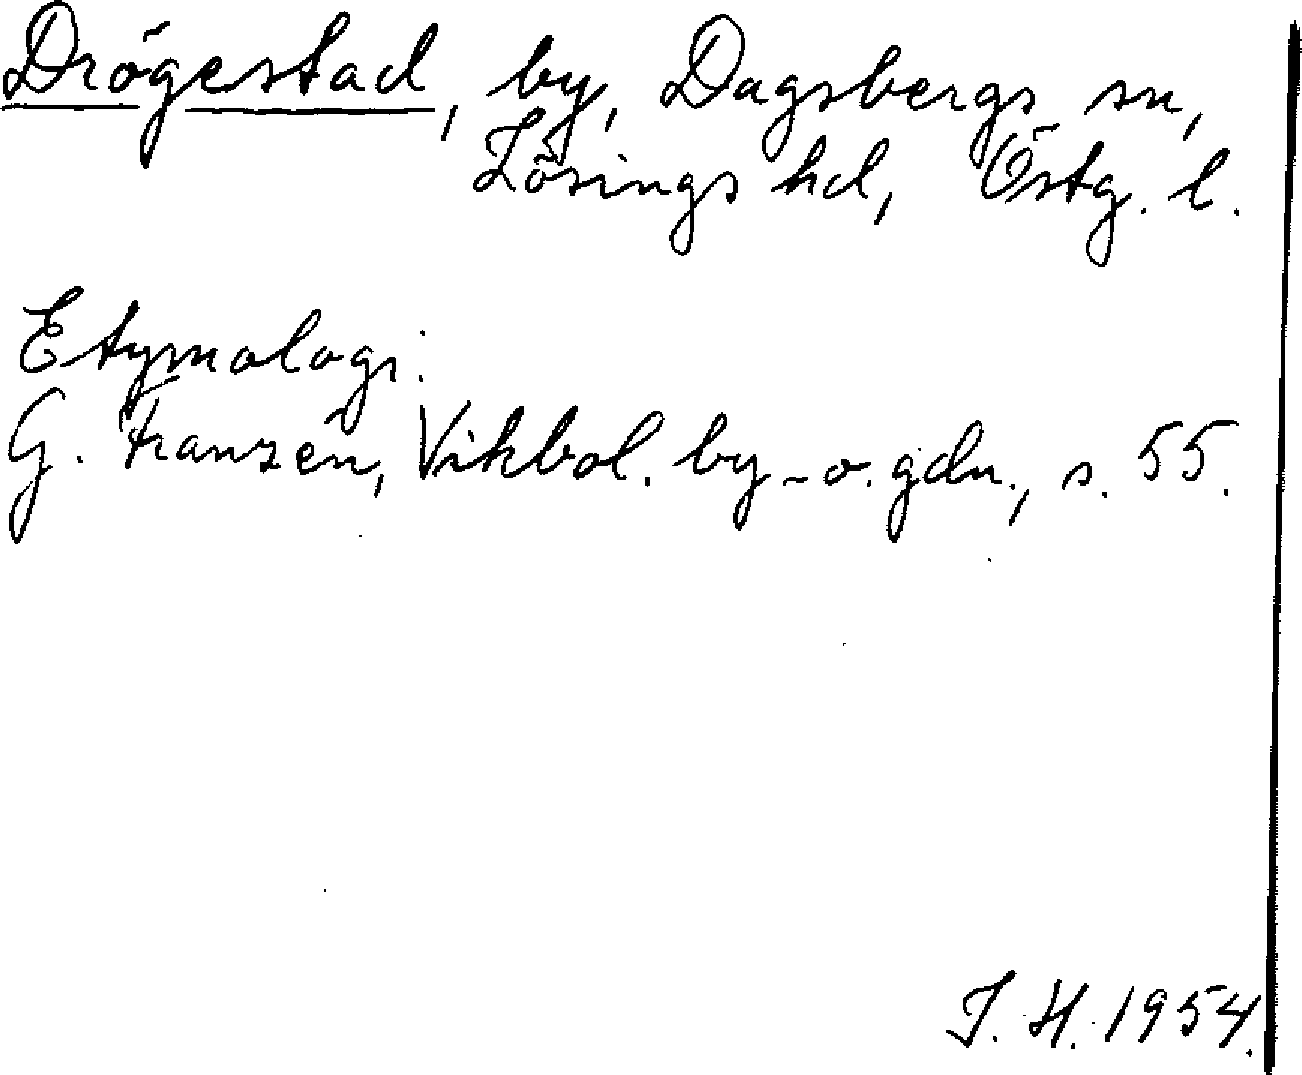 Drögestad, by, Dagsbergs sn,
Lösings hd, Östg. l.
Etymologi:
G. Franzén, Vikbol. by- o. gdn., s. 55.
J. H. 1954.